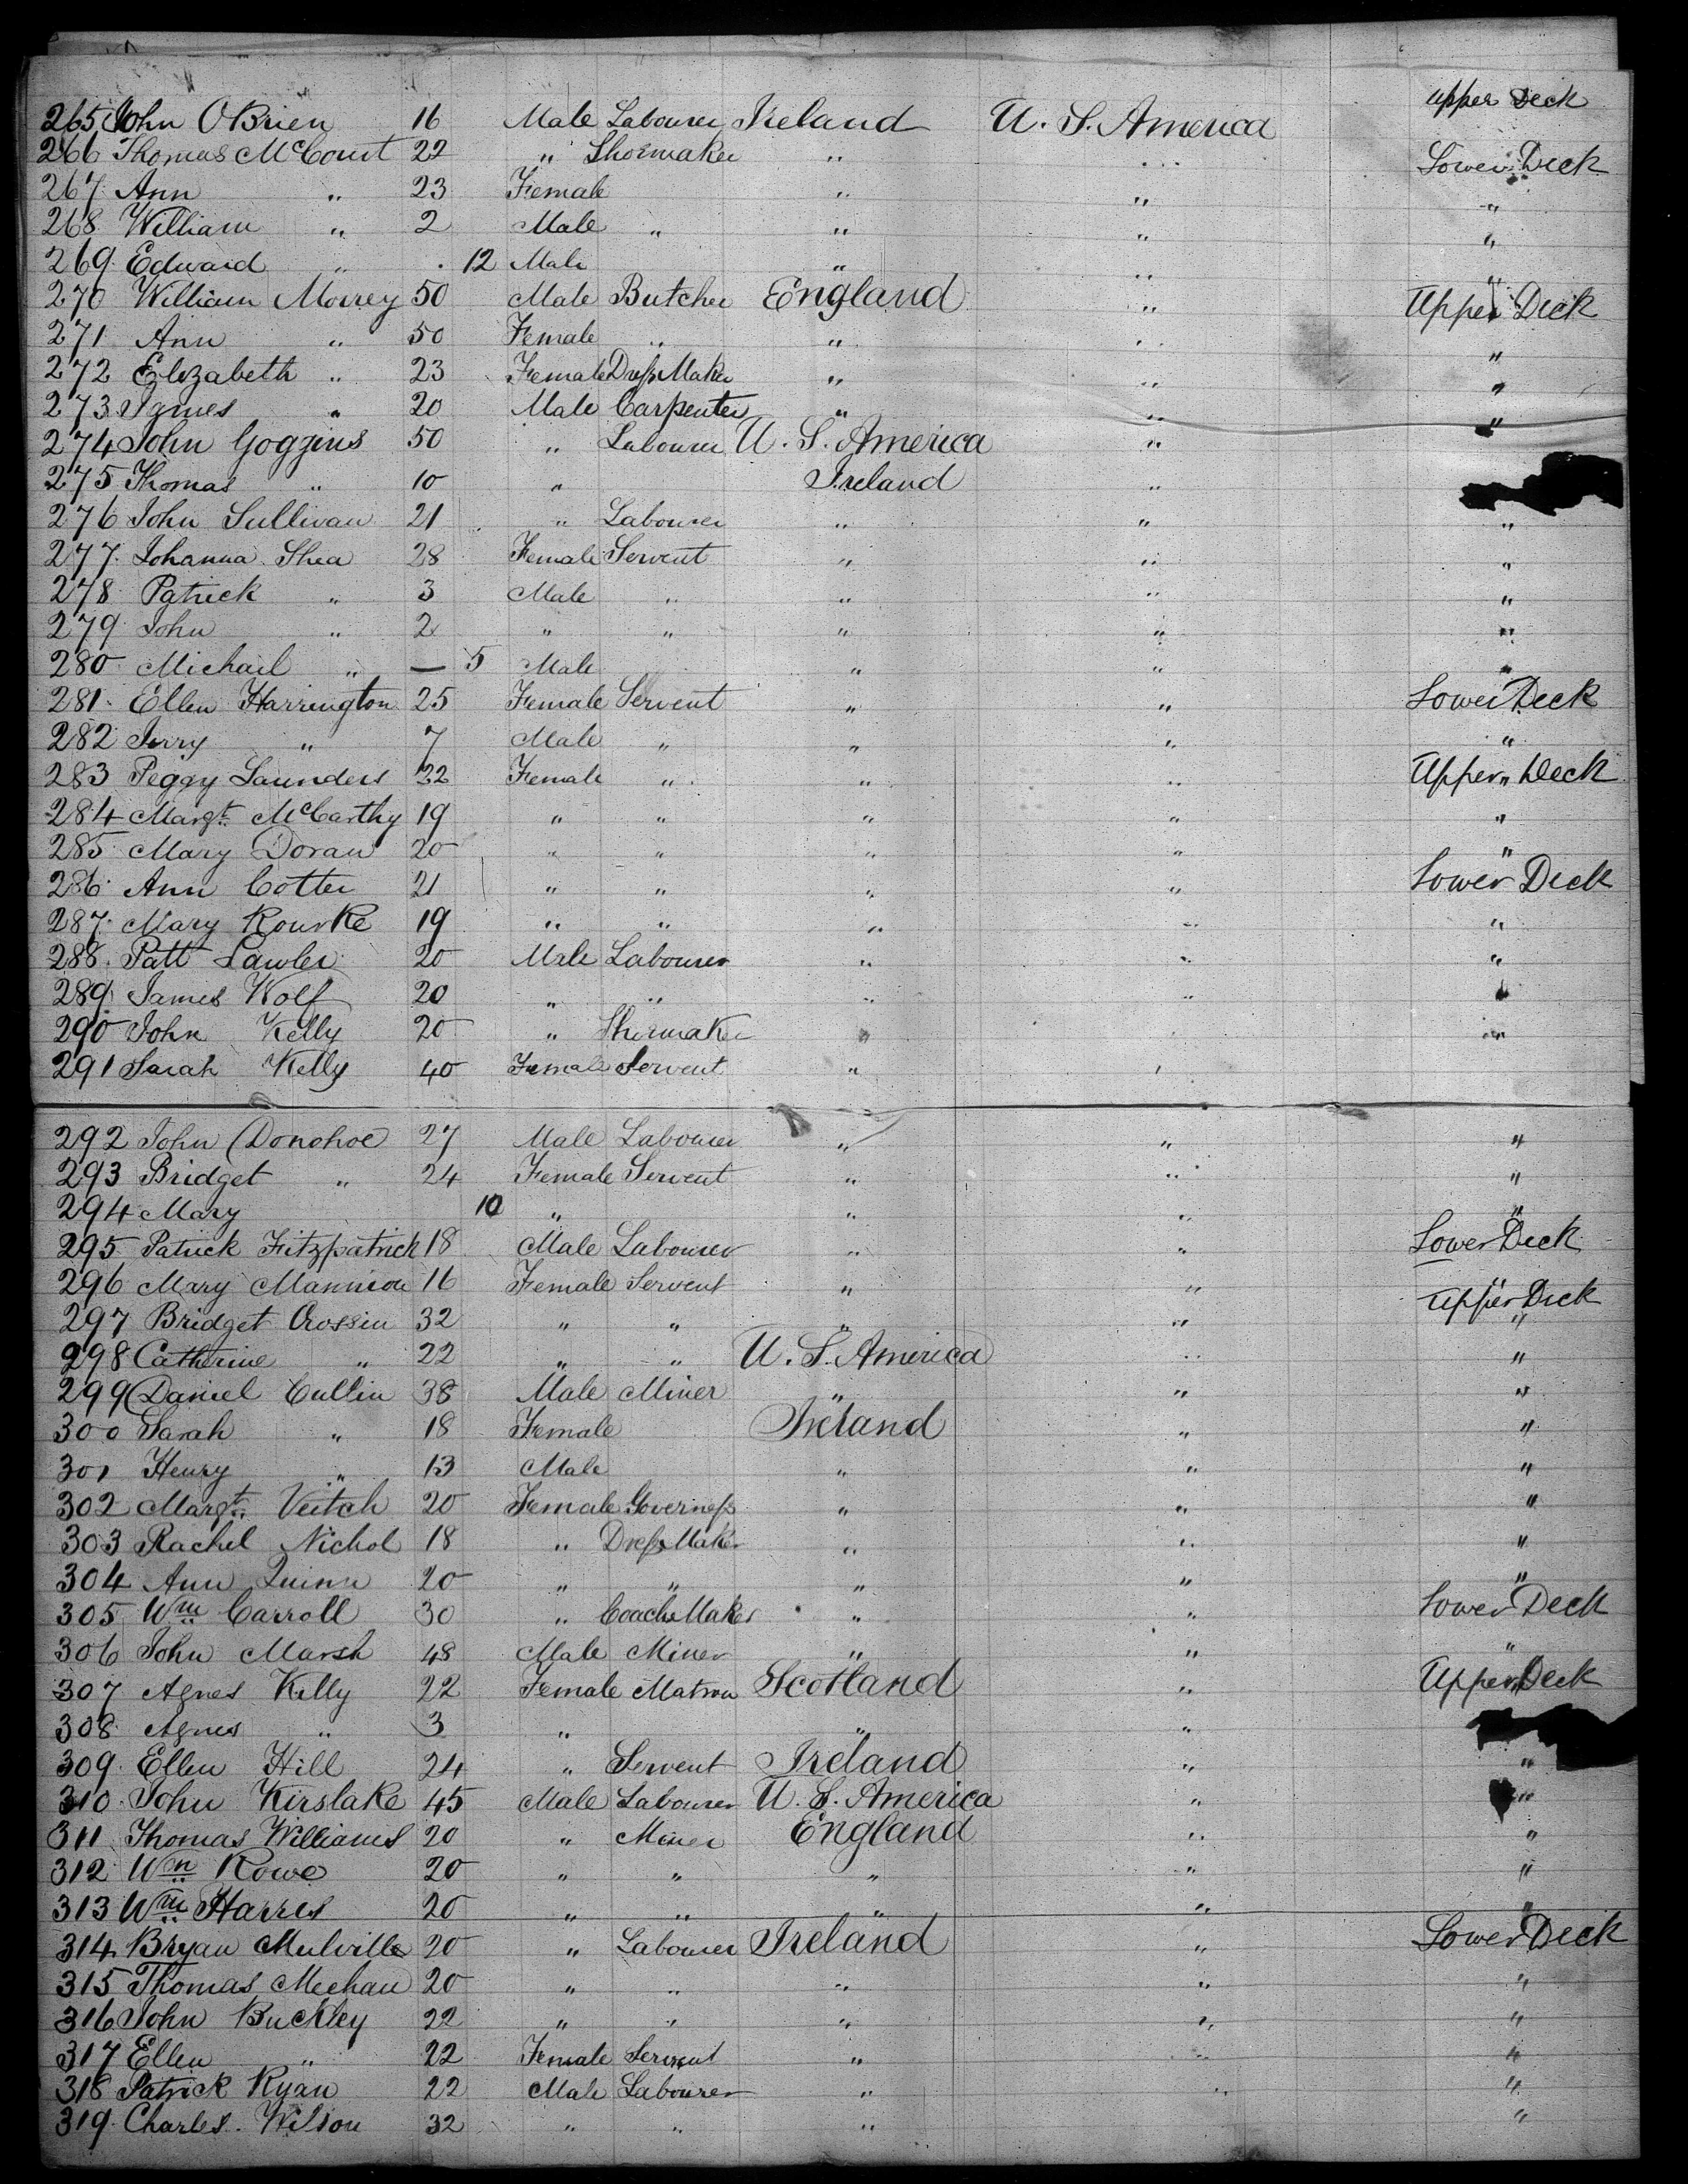 265 John OBrien 16 Male Labourer Ireland U. S. America Upper Deck
266 Thomas McCourt 22 " Shoemaker " " Lower Deck
267 Ann " 23 Female " " "
268 William " 2 Male " " " "
269 Edward " . 12 Male " " "
270 William Morrey 50 Male Butcher England " Upper Deck
271 Ann " 50 Female " " " "
272 Elizabeth " 23 Female Dress Maker " " "
273 James " 20 Male Carpenter " " "
274 John Goggins 50 " Labourer U. S. America "
275 Thomas " 10 " Ireland "
276 John Sullivan 21 " Labourer " " "
277 Johanna Shea 28 Female Servent " " "
278 Patrick " 3 Male " " " "
279 John " 2 " " " " "
280 Michail " — 5 Male " " "
281 Ellen Harrington 25 Female Servent " " Lower Deck
282 Jerry " 7 Male " " " "
283 Peggy Saunders 22 Female " " " Upper Deck
284 Margt. McCarthy 19 " " " " "
285 Mary Doran 20 " " " " "
286 Ann Cotter 21 " " " " Lower Deck
287 Mary Rourke 19 " " " " "
288 Patt Lawler 20 Male Labourer " " "
289 James Wolf 20 " " " " "
290 John Kelly 20 " Shoemaker " "
291 Sarah Kelly 40 Female Servent "
292 John Donohoe 27 Male Labourer " " "
293 Bridget " 24 Female Servent " " "
294 Mary 10 " " " "
295 Patrick Fitzpatrick 18 Male Labourer " " Lower Deck
296 Mary Mannion 16 Female Servent " " Upper Deck
297 Bridget Crossin 32 " " " " "
298 Catherine " 22 " " U. S. America " "
299 Daniel Cullin 38 Male Miner " " "
300 Sarah " 18 Female Ireland " "
301 Henry " 13 Male " " "
302 Margt. Veitch 20 Female Governess " " "
303 Rachel Nichol 18 " Dress Maker " " "
304 Ann Quinn 20 " " " " "
305 Wm Carroll 30 " Coach Maker " " Lower Deck
306 John Marsh 48 Male Miner " " "
307 Agnes Kelly 22 Female Matron Scotland " Upper Deck
308 Agnes " 3 " " "
309 Ellen Hill 24 " Servent Ireland " "
310 John Kirslake 45 Male Labourer U. S. America " "
311 Thomas Williams 20 " Miner England " "
312 Wm Rowe 20 " " " " "
313 Wm Harris 20 " " " " "
314 Bryan Mulville 20 " Labourer Ireland " Lower Deck
315 Thomas Meehan 20 " " " " "
316 John Buckley 22 " " " " "
317 Ellen " 22 Female Servent " " "
318 Patrick Ryan 22 Male Labourer " " "
319 Charles Wilson 32 " " " "